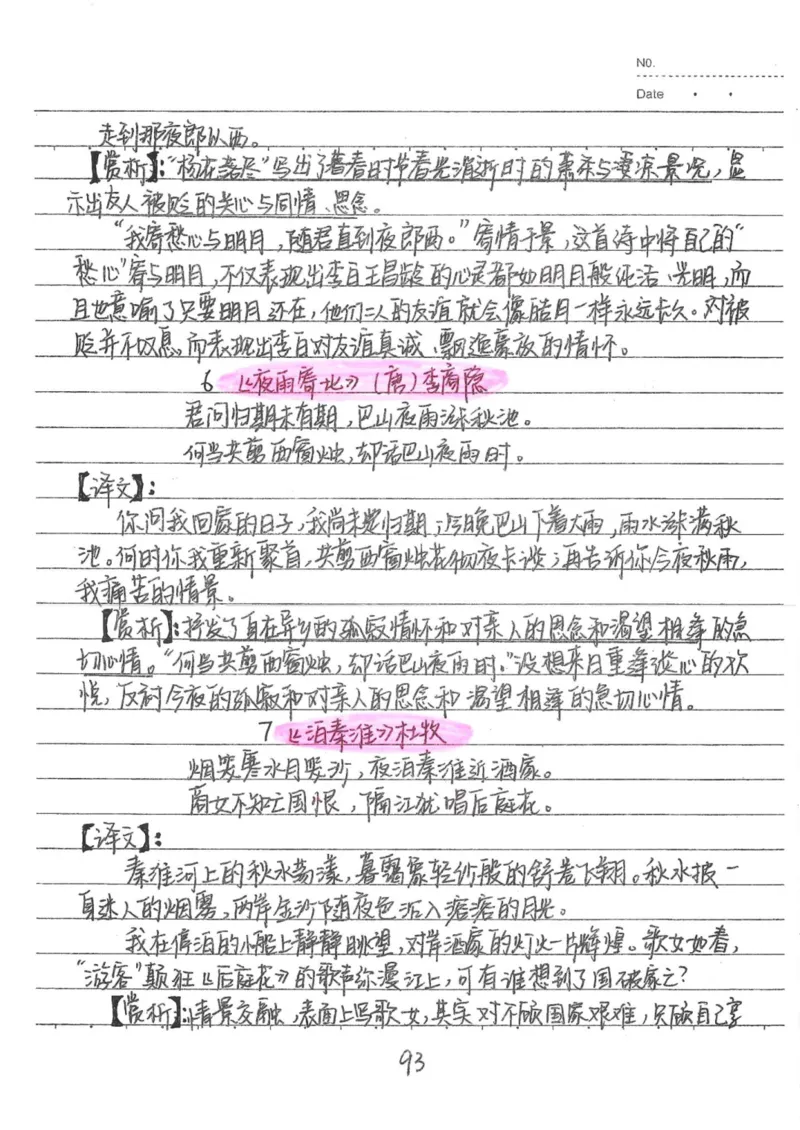 NO.
Date
走到那夜郎以西。
【赏析】:“杨花落尽”写出了暮春时节春光消逝时的萧杀与凄凉景况,显
示出友人被贬的关心与同情、思念。
“我寄愁心与明月,随君直到夜郎西。”寄情于景,这首诗中将自己的“
愁心”寄与明月,不仅表现出李白王昌龄的心灵都如明月般纯洁、光明,而
且也意喻了只要明月还在,他们二人的友谊就会像皓月一样永远长久。对被
贬并不叹息。而表现出李白对友谊真诚、飘逸豪放的情怀。
6 《夜雨寄北》(唐)李商隐
君问归期未有期,巴山夜雨涨秋池。
何当共剪西窗烛,却话巴山夜雨时。
【译文】:
你问我回家的日子,我尚未定归期;今晚巴山下着大雨,雨水涨满秋
池。何时你我重新聚首,共剪西窗烛花彻夜长谈;再告诉你今夜秋雨,
我痛苦的情景。
【赏析】:抒发了身在异乡的孤寂情怀和对亲人的思念和渴望相逢的急
切心情。“何当共剪西窗烛,却话巴山夜雨时。”设想来日重逢谈心的欢
悦,反衬今夜的孤寂和对亲人的思念和渴望相逢的急切心情。
7 《泊秦淮》杜牧
烟笼寒水月笼沙,夜泊秦淮近酒家。
商女不知亡国恨,隔江犹唱后庭花。
【译文】:
秦淮河上的秋水荡漾,暮霭象轻纱般的舒卷飞翔。秋水披一
身迷人的烟雾,两岸金沙随夜色沉入痞痞的月光。
我在停泊的小船上静静眺望,对岸酒家的灯火一片辉煌。歌女如着,
“游客”颠狂《后庭花》的歌声弥漫江上,可有谁想到了国破家亡?
【赏析】:情景交融,表面上写歌女,其实对不顾国家艰难,只顾自己享
93